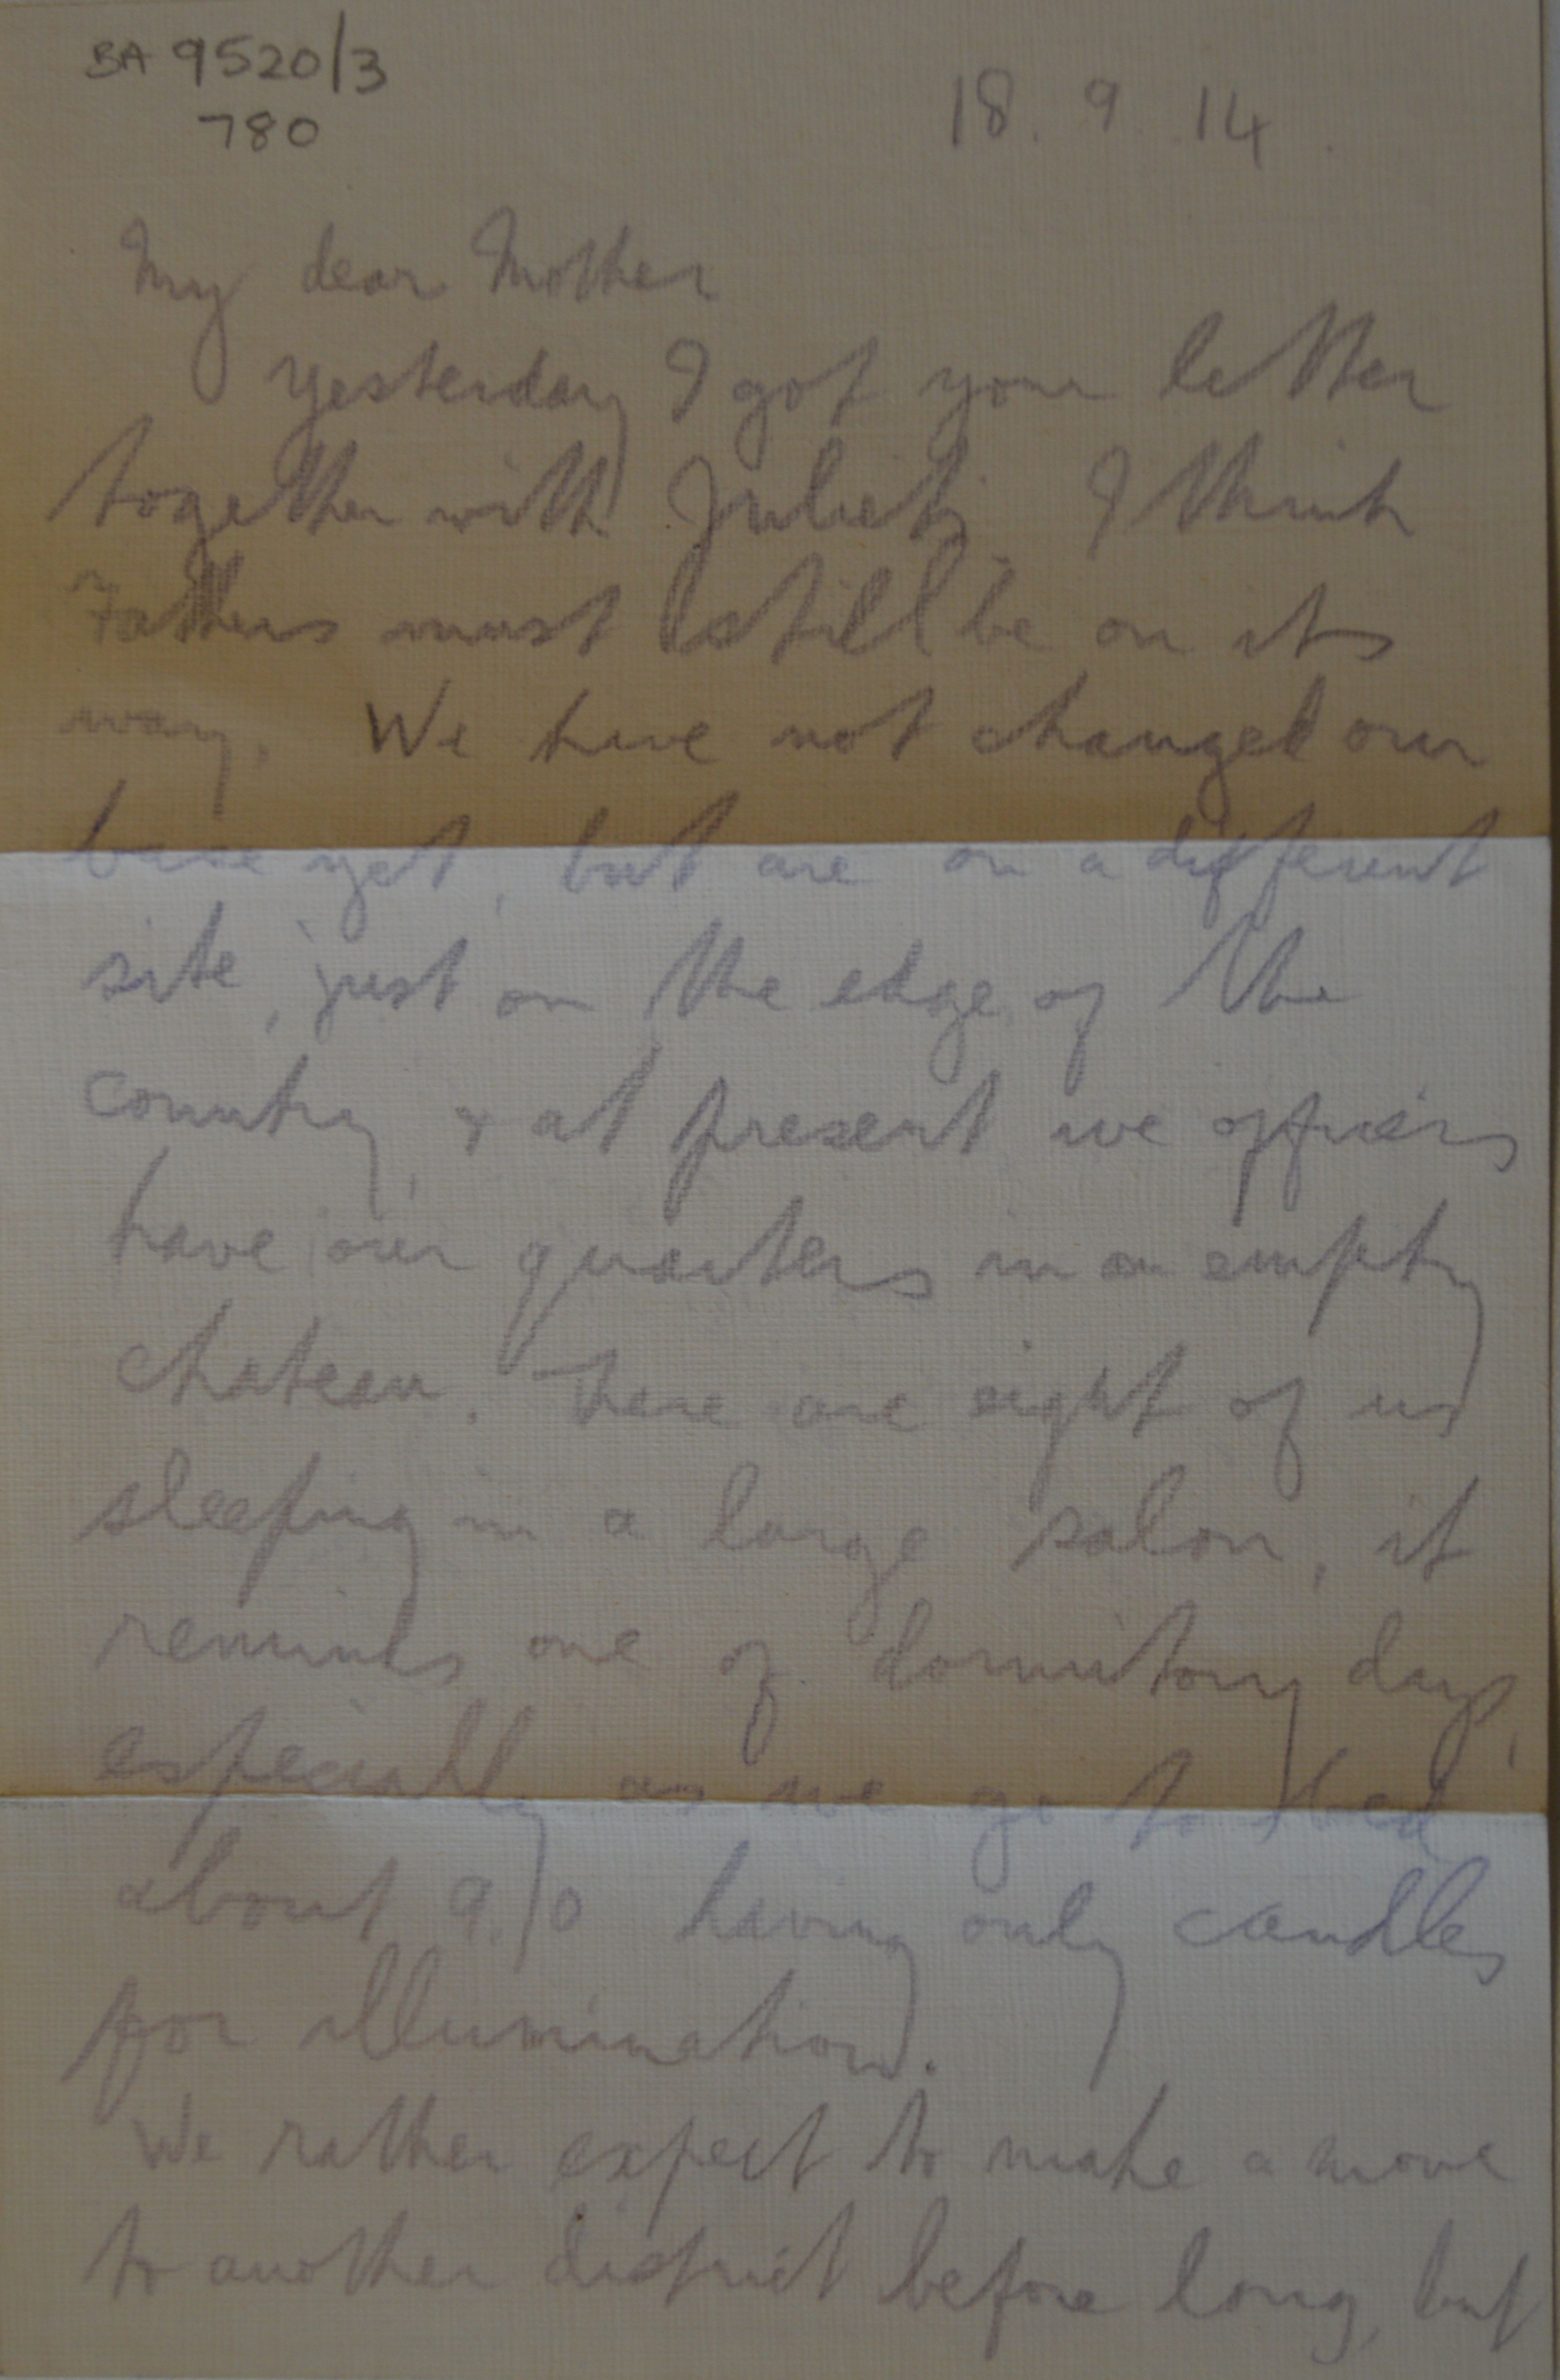 BA 9520/3
780
18. 9. 14
My dear Mother
Yesterday I got your letter
together with Juliets. I think
Fathers must still be on its
way. We have not changed our
base yet, but are on a different
site, just on the edge of the
country, & at present we officers
have our quarters in an empty
chateau. There are eight of us
sleeping in a large salon, it
reminds one of dormitory days,
especially as we go to bed
about 9.0 having only candles
for illumination.
We rather expect to make a move
to another district before long, but